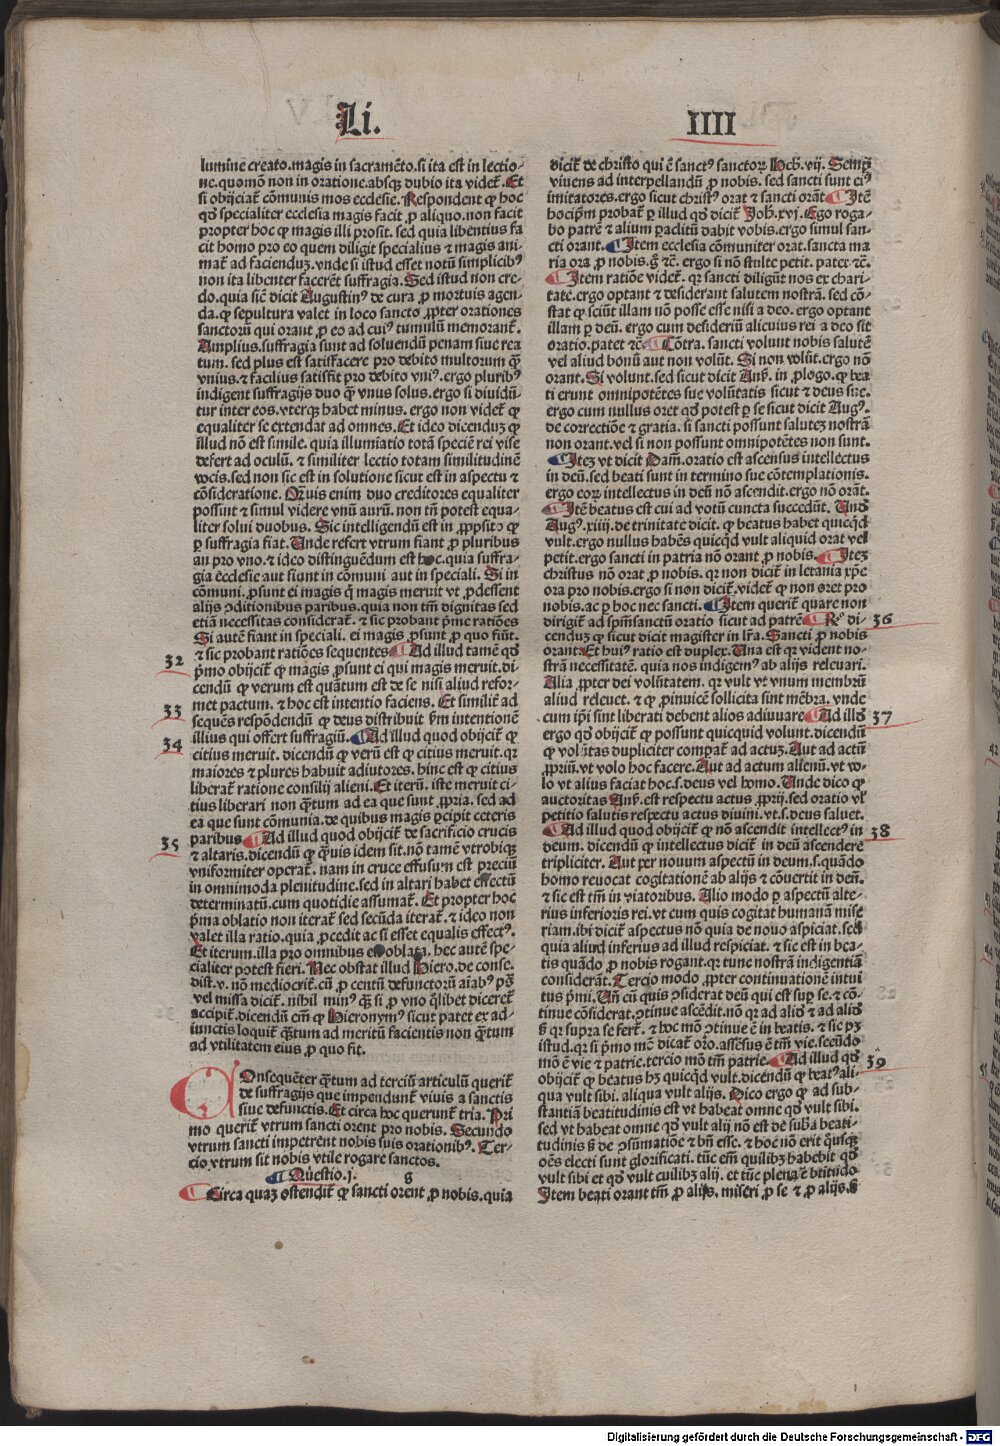 Li. IIII
lumine creato. magis in sacramēto. si ita est in lectio-
ne. quomō non in oratione. absqꝫ dubio ita videt̄. Et
si obijciat̄ cōmunis mos ecclesie. Respondent ꝙ hoc
qď specialiter ecclesia magis facit ꝓ aliquo. non facit
propter hoc ꝙ magis illi prosit. sed quia libentius fa
cit homo pro eo quem diligit specialius ⁊ magis ani-
mat̄ ad facienduꝫ. vnde si istud esset notū simplicibꝰ
non ita libenter facerēt suffragia. Sed istud non cre-
do. quia sicꝰ dicit Augustinꝰ de cura ꝓ mortuis agen-
da. ꝙ sepultura valet in loco sancto ꝓpter orationes
sanctorū qui orant ꝓ eo ad cuiꝰ tumulū memorant̄.
Amplius. suffragia sunt ad soluendū penam siue rea
tum. sed plus est satisfacere pro debito multorum ꝙ̄
vnius. ⁊ facilius satisfit pro debito vniꝰ. ergo pluribꝰ
indigent suffragijs duo ꝙ̄ vnus solus. ergo si diuidū-
tur inter eos. vterqꝫ habet minus. ergo non videt̄ ꝙ
equaliter se extendat ad omnes. Et ideo dicenduꝫ ꝙ
illud nō est simile. quia illumiatio totā speciē rei vise
defert ad oculū. ⁊ similiter lectio totam similitudinē
vocis. sed non sic est in solutione sicut est in aspectu ⁊
cōsideratione. Qꝫuis enim duo creditores equaliter
possunt ⁊ simul videre vnū aurū. non tn̄ potest equa-
liter solui duobus. Sic intelligendū est in ꝓposito ꝙ
ꝑ suffragia fiat. Unde refert vtrum fiant ꝓ pluribus
an pro vno. ⁊ ideo distinguēdum est hoc. quia suffra-
gia ecclesie aut fiunt in cōmuni aut in speciali. Si in
cōmuni. ꝓsunt ei magis ꝗ magis meruit vt ꝓdessent
alijs ꝯditionibus paribus. quia non tm̄ dignitas sed
etiā necessitas considerat̄. ⁊ sic probant p̄me ratiōes
Si autē fiant in speciali. ei magis ꝓsunt ꝓ quo fiūt.
⁊ sic probant ratiōes sequentes ¶ Ad illud tamē qď
32
p̄mo obijcit̄ ꝙ magis ꝓsunt ei qui magis meruit. di-
cendū ꝙ verum est quātum est de se nisi aliud refor-
met pactum. ⁊ hoc est intentio faciens. Et similit̄ ad
33
sequēs respōdendū ꝙ deus distribuit ẜm intentionē
illius qui offert suffragiū. ¶ Ad illud quod obijcit̄ ꝙ
34
citius meruit. dicendū ꝙ verū est ꝙ citius meruit. qꝛ
maiores ⁊ plures habuit adiutores. hinc est ꝙ citius
liberat̄ ratione consilij alieni. Et iterū. iste meruit ci-
tius liberari non qꝫtum ad ea que sunt ꝓpria. sed ad
ea que sunt cōmunia. de quibus magis ꝑcipit ceteris
paribus ¶ Ad illud quod obijcit̄ de sacrificio crucis
35
⁊ altaris. dicendū ꝙ qꝫuis idem sit. nō tamē vtrobiqꝫ
vniformiter operat̄. nam in cruce effusum est preciū
in omnimoda plenitudine. sed in altari habet effectū
determinatū. cum quotidie assumat̄. Et propter hoc
p̄ma oblatio non iterat̄ sed secūda iterat̄. ⁊ ideo non
valet illa ratio. quia ꝓcedit ac si esset equalis effectꝰ.
Et iterum. illa pro omnibus est oblata. hec autē spe-
cialiter potest fieri. Nec obstat illud Hiero. de conse.
dist. v. nō mediocrit̄. cū ꝓ centū defunctorū aīabꝰ pſ̄ꝰ
vel missa dicit̄. nihil minꝰ qꝫ si ꝓ vno qͥlibet diceret̄
accipit̄. dicendū em̄ ꝙ Hieronymꝰ sicut patet ex ad-
iunctis loquit̄ qꝫtum ad meritū facientis non qꝫtum
ad vtilitatem eius ꝓ quo fit.
COnsequēter qꝫtum ad terciū articulū querit̄
de suffragijs que impendunt̄ viuis a sanctis
siue defunctis. Et circa hoc querunt̄ tria. Pri
mo querit̄ vtrum sancti orent pro nobis. Secundo
vtrum sancti impetrent nobis suis orationibꝰ. Ter-
cio vtrum sit nobis vtile rogare sanctos.
¶ Questio. j. g
¶ Circa quaꝫ ostendit̄ ꝙ sancti orent ꝓ nobis. quia
dicit̄ de christo qui ē sanctꝰ sanctoꝝ Heb. vij. Semꝑ
viuens ad interpellandū ꝓ nobis. sed sancti sunt eiꝰ
imitatores. ergo sicut christꝰ orat ⁊ sancti orāt ¶ Itē
hocip̄m probat̄ ꝑ illud qď dicit̄ Joh. xvj. Ego roga-
bo patrē ⁊ alium paclitū dabit vobis. ergo simul san-
cti orant. ¶ Item ecclesia cōmuniter orat. sancta ma
ria ora ꝓ nobis. ꝗ̄ ⁊c̄. ergo si nō stulte petit. patet ⁊c̄.
¶ Item ratiōe videt̄. qꝛ sancti diligūt nos ex chari-
tate. ergo optant ⁊ desiderant salutem nostrā. sed cō-
stat ꝙ sciūt illam nō posse esse nisi a deo. ergo optant
illam ꝑ deū. ergo cum desideriū alicuius rei a deo sit
oratio. patet ⁊c̄ ¶ Cōtra. sancti volunt nobis salutē
vel aliud bonū aut non volūt. Si non volūt. ergo nō
orant. Si volunt. sed sicut dicit Anẜ. in ꝓlogo. ꝙ bea
ti erunt omnipotētes sue volūtatis sicut ⁊ deus sue.
ergo cum nullus oret qď potest ꝑ se sicut dicit Augꝰ.
de correctiōe ⁊ gratia. si sancti possunt salutez nostrā
non orant. vel si non possunt omnipotētes non sunt.
¶ Iteꝫ vt dicit Dam̄. oratio est ascensus intellectus
in deū. sed sunt in termino sue cōtemplationis.
ergo eoꝝ intellectus in deū nō ascendit. ergo nō orāt.
¶ Itē beatus est cui ad votū cuncta succedūt. Unď
Augꝰ. xiiij. de trinitate dicit. ꝙ beatus habet quicqͥd
vult. ergo nullus habēs quicqͥd vult aliquid orat vel
petit. ergo sancti in patria nō orant ꝓ nobis. ¶ Iteꝫ
christus nō orat ꝓ nobis. qꝛ non dicit̄ in letania xp̄e
ora pro nobis. ergo si non dicit̄. videt̄ ꝙ non oret pro
nobis. ac ꝑ hoc nec sancti. ¶ Item querit̄ quare non
dirigit̄ ad sp̄msanctū oratio sicut ad patrē ¶ Rꝰ di-
36
cenduꝫ ꝙ sicut dicit magister in lr̄a. Sancti ꝓ nobis
orant. Et huiꝰ ratio est duplex. Una est qꝛ vident no-
strā necessitatē. quia nos indigemꝰ ab alijs releuari.
Alia ꝓpter dei volūtatem. qꝛ vult vt vnum membrū
aliud releuet. ⁊ ꝙ ꝓinuicē sollicita sint mēbra. vnde
cum ip̄i sint liberati debent alios adiuuare ¶ Ad illď
37
ergo qď obijcit̄ ꝙ possunt quicquid volunt. dicendū
ꝙ volūtas dupliciter compat̄ ad actuꝫ. Aut ad actū
ꝓpriū. vt volo hoc facere. Aut ad actum alienū. vt vo-
lo vt alius faciat hoc. s. deus vel homo. Unde dico ꝙ
auctoritas Anẜ. est respectu actus ꝓprij. sed oratio vl̄
petitio salutis respectu actus diuini. vt. s. deus saluet.
¶ Ad illud quod obijcit̄ ꝙ nō ascendit intellectꝰ in
38
deum. dicendū ꝙ intellectus dicit̄ in deū ascendere
tripliciter. Aut per nouum aspectū in deum. s. quādo
homo reuocat cogitationē ab alijs ⁊ cōuertit in deū.
⁊ sic est tm̄ in viatoribus. Alio modo ꝑ aspectū alte-
rius inferioris rei. vt cum quis cogitat humanā mise
riam. ibi dicit̄ aspectus nō quia de nouo aspiciat. sed
quia aliud inferius ad illud respiciat. ⁊ sic est in bea-
tis quādo ꝓ nobis rogant. qꝛ tunc nostrā indigentiā
considerāt. Tercio modo ꝓpter continuationē intui
tus p̄mi. Un̄ cū quis ꝯsiderat deū qui est suꝑ se. ⁊ cō-
tinue cōsiderat. ꝯtinue ascēdit. nō qꝛ ad aliď ⁊ ad aliď
ẜ qꝛ supra se fert̄. ⁊ hoc mō ꝯtinue ē in beatis. ⁊ sic pꝫ
istud. qꝛ si p̄mo mō dicat̄ oro. assēsus ē tm̄ vie. secūdo
mō ē vie ⁊ patrie. tercio mō tm̄ patrie. ¶ Ad illud qď
39
obijcit̄ ꝙ beatus hꝫ quicqͥd vult. dicendū ꝙ beatꝰ ali-
qua vult sibi. aliqua vult alijs. Dico ergo ꝙ ad sub-
stantiā beatitudinis est vt habeat omne qď vult sibi.
sed vt habeat omne qď vult alij nō est de suba beati-
tudinis ẜ de ꝯsūmatiōe ⁊ bn̄ esse. ⁊ hoc nō erit qͥusqꝫ
oēs electi sunt glorificati. tūc em̄ quilibꝫ habebit qď
vult sibi et qď vult cuilibꝫ alij. et tūc plena ē btitudo
Item beati orant tm̄ ꝓ alijs. miseri ꝓ se ⁊ ꝓ alijs. ẜ
Digitalisierung gefördert durch die Deutsche Forschungsgemeinschaft - DFG